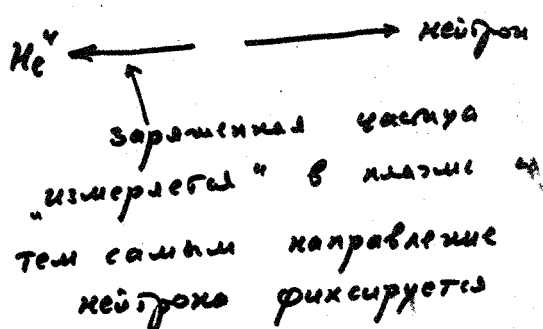 He⁴ нейтрон
заряженная частица
„измеряется“ в плазме и
тем самым направление
нейтрона фиксируется